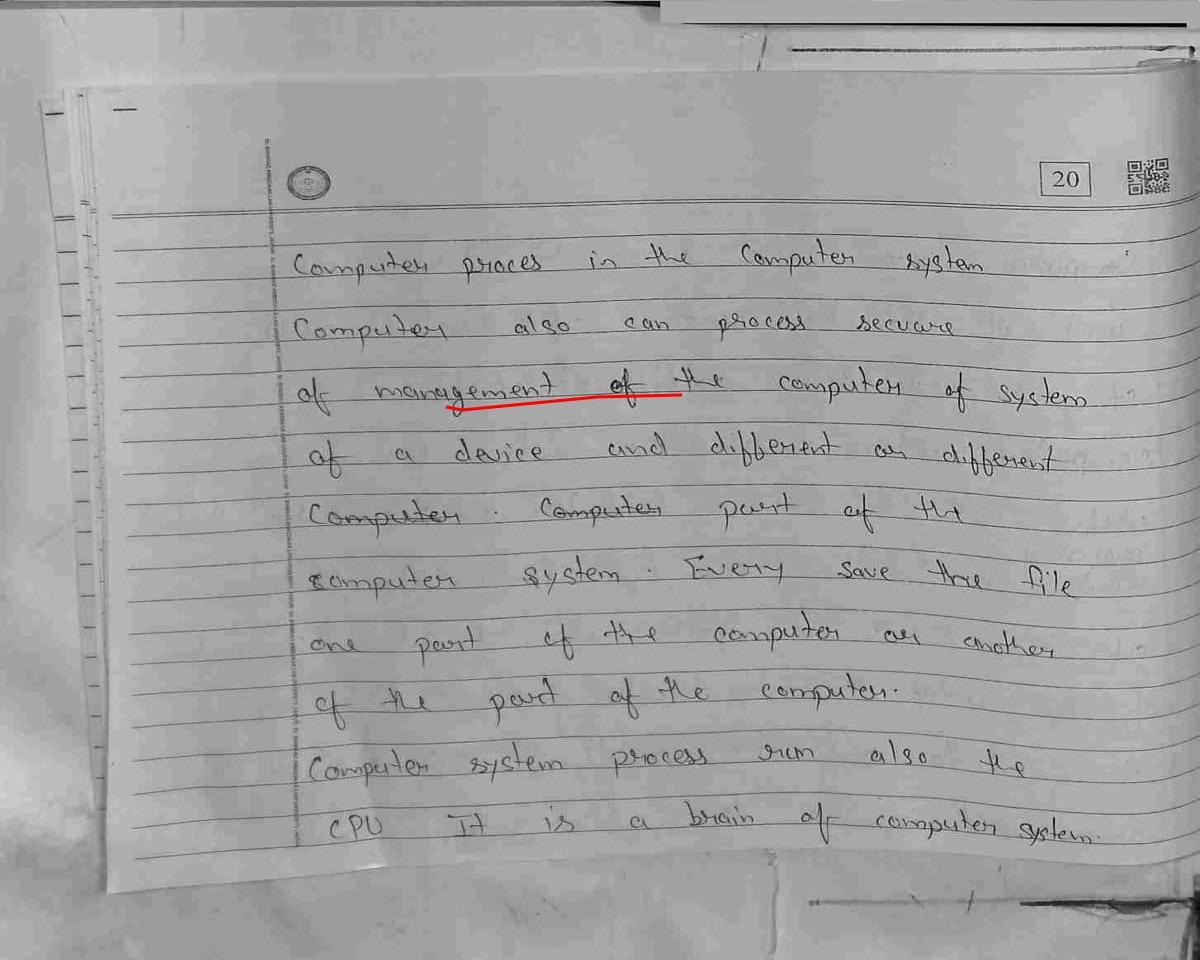 20
Computer proces in the Computer system
Computer also can process secuare
of management of the computer of system
of a device and different or different
Computer . Computer part of the
computer system . Every save the file
one part of the computer or another
of the part of the computer.
Computer system process run also the
CPU It is a brain of computer system.